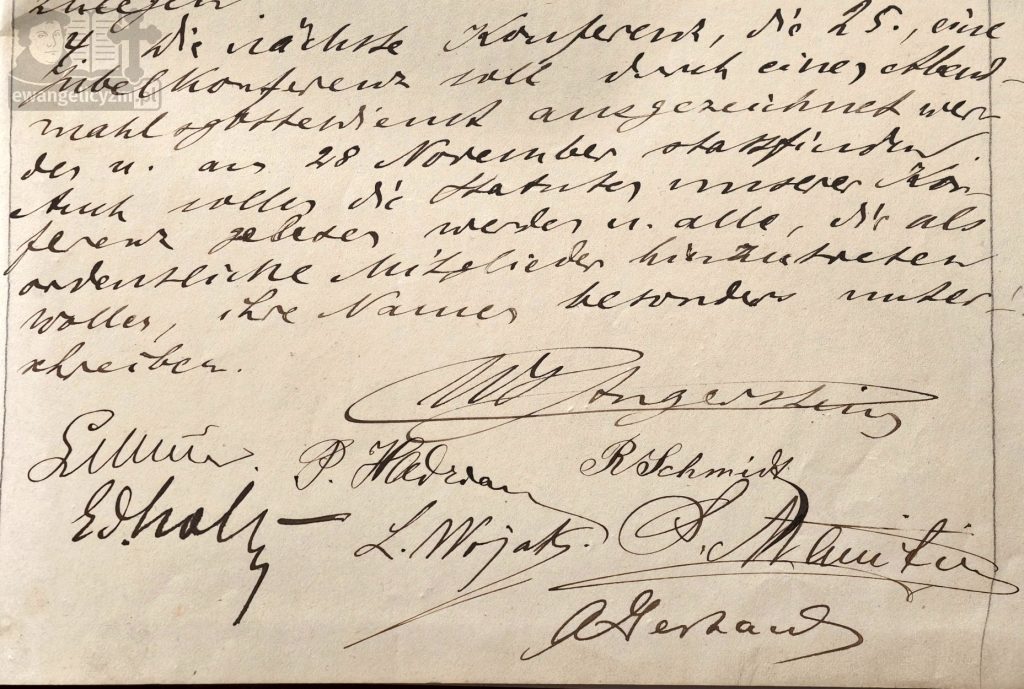 zulegen
4. Die nächste Konferenz, die 25., eine
Jubelkonferenz soll durch einen Abend-
mahlsgottesdienst ausgezeichnet wer-
den u. am 28 November stattfinden.
Auch sollen die Statuten unserer Kon-
ferenz gelesen werden u. alle, die als
ordentliche Mitglieder hinzutreten
wollen, ihre Namen besonders unter-
schreiben.
Angerstein
P. Hadrian R Schmidt
Ed. Holtz L. Wojak.
A Gerhardt
ewangelicyzm.pl